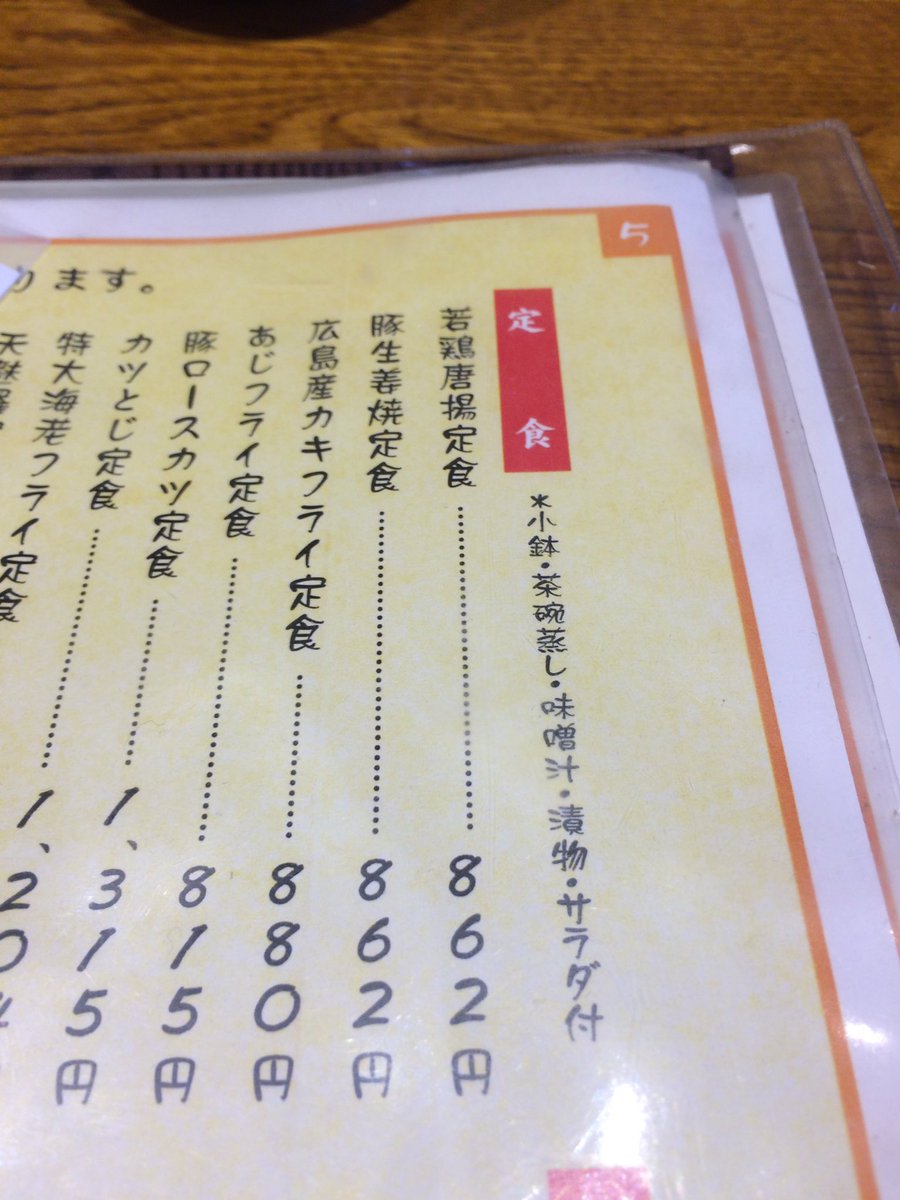 5
定食
*小鉢・茶碗蒸し・味噌汁・漬物・サラダ付
若鶏唐揚定食………862円
豚生姜焼定食………862円
広島産カキフライ定食………880円
あじフライ定食………815円
豚ロースカツ定食………1、315円
カツとじ定食………1、20
特大海老フライ定食
ります。